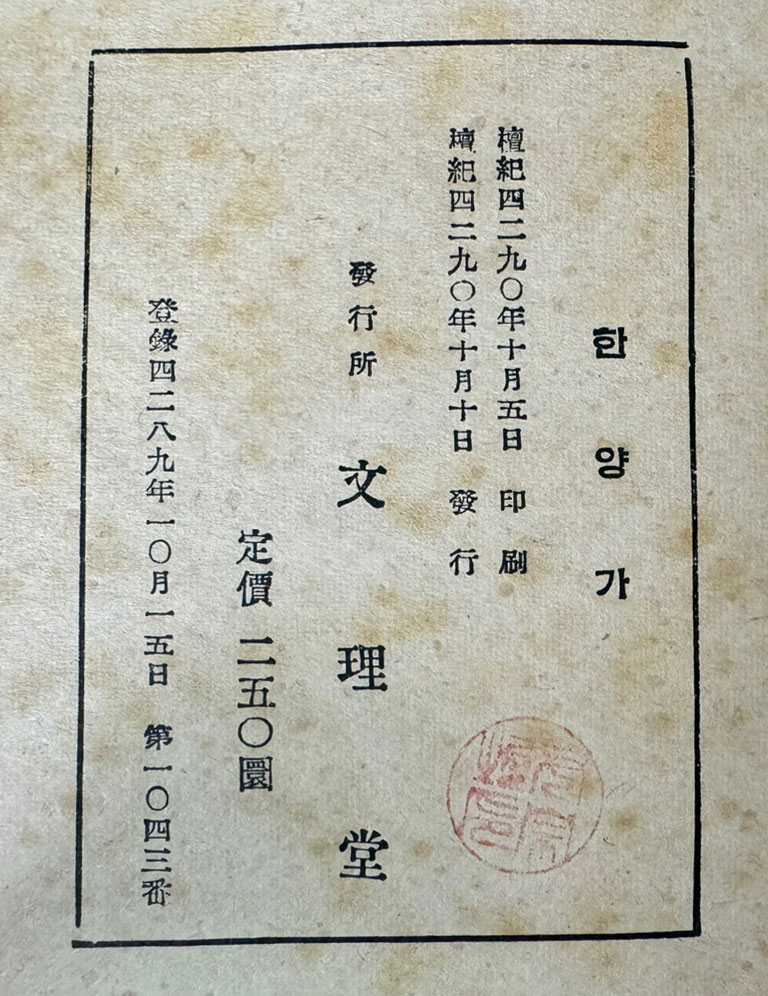 한양가
檀紀四二九〇年十月五日 印刷
檀紀四二九〇年十月十日 發行
發行所 文理堂
定價 二五〇圜
登錄四二八九年一〇月一五日 第一〇四三番